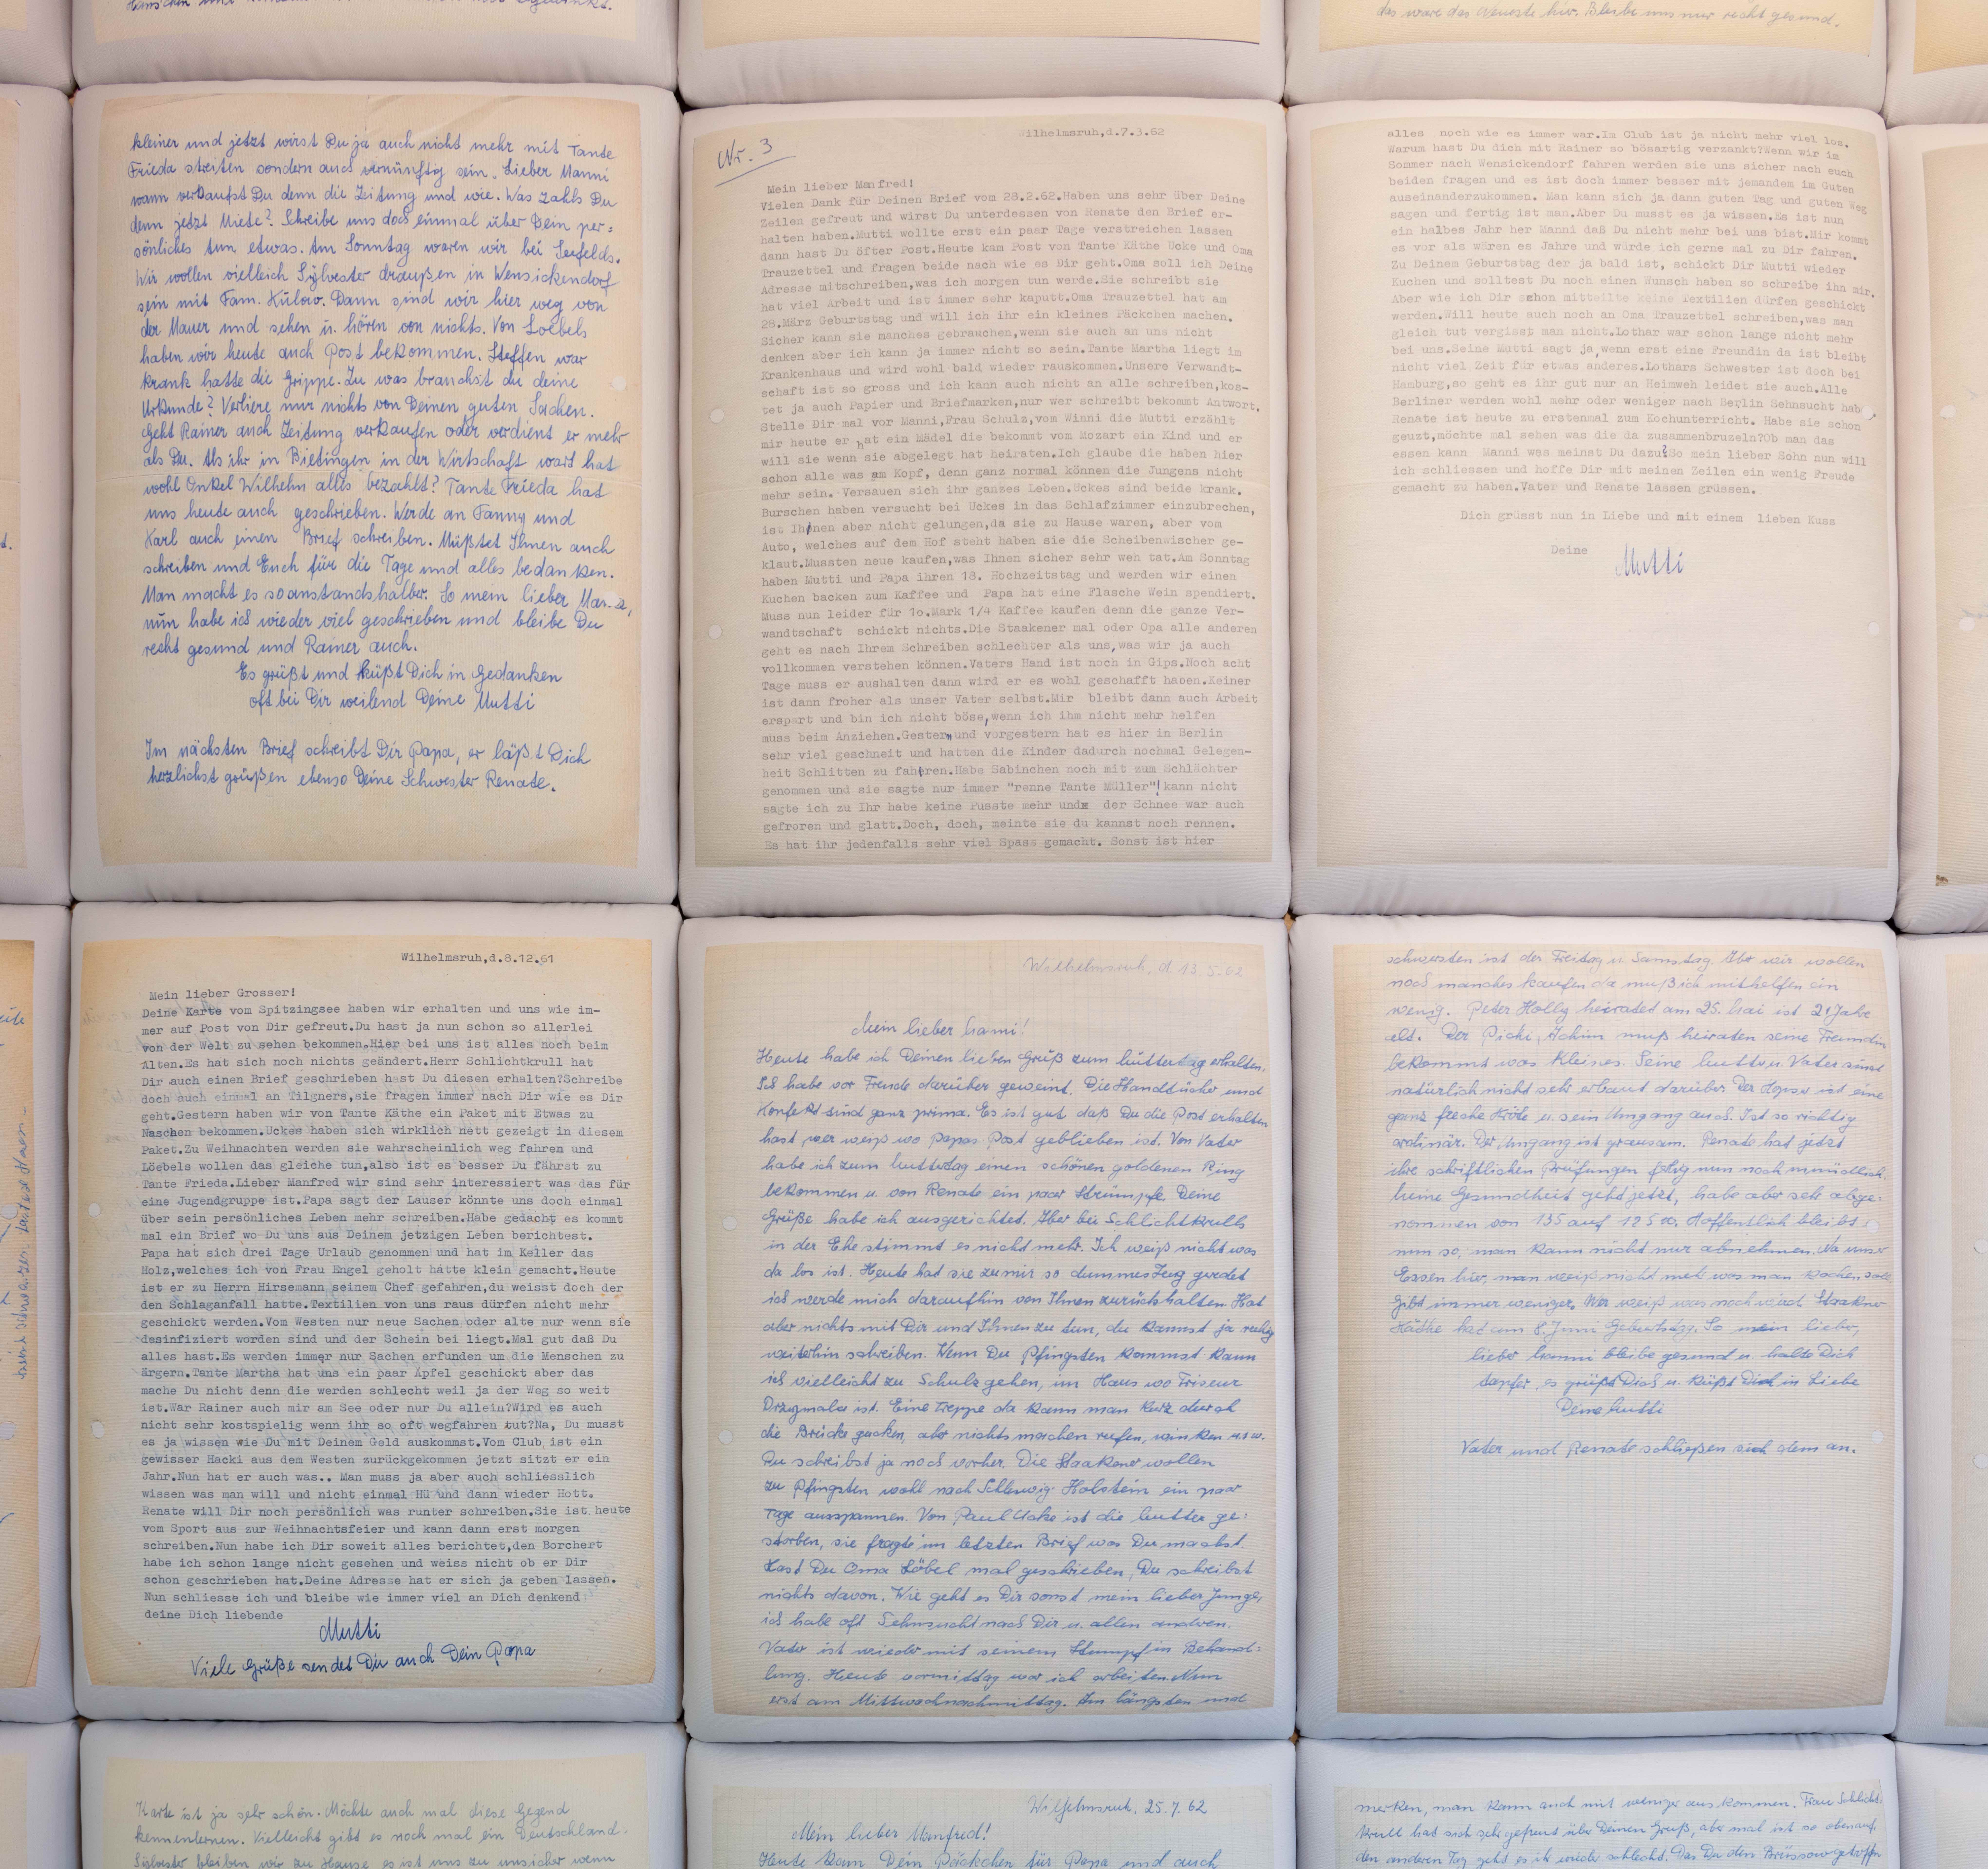 das wäre das Neueste hier. Bleibe uns nur recht gesund.
kleiner und jetzt wirst Du ja auch nicht mehr mit Tante
Frieda streiten sondern auch vernünftig sein. Lieber Manni
wann verkaufst Du denn die Zeitung und wie. Was zahls Du
denn jetzt Miete? Schreibe uns doch einmal über Dein per=
sönliches tun etwas. Am Sonntag waren wir bei Seefelds.
Wir wollen vielleich Sylvester draußen in Wensickendorf
sein mit Fam. Külow. Dann sind wir hier weg von
der Mauer und sehen u. hören von nichts. Von Loebels
haben wir heute auch Post bekommen. Steffen war
krank hatte die Grippe. Zu was brauchst du deine
Urkunde? Verliere nur nichts von Deinen guten Sachen.
Geht Rainer auch Zeitung verkaufen oder verdient er mehr
als Du. Als ihr in Bietingen in der Wirtschaft wart hat
wohl Onkel Wilhelm alles bezahlt? Tante Frieda hat
uns heute auch geschrieben. Werde an Fanny und
Karl auch einen Brief schreiben. Müßtet Ihnen auch
schreiben und Euch für die Tage und alles bedanken.
Man macht es so anstandshalber. So mein lieber
nun habe ich wieder viel geschrieben und bleibe Du
recht gesund und Rainer auch.
Es grüßt und küßt Dich in Gedanken
oft bei Dir weilend Deine Mutti
Im nächsten Brief schreibt Dir Papa, er läßt Dich
herzlichst grüßen ebenso Deine Schwester Renate.
Nr. 3
Wilhelmsruh,d.7.3.62
Mein lieber Manfred!
Vielen Dank für Deinen Brief vom 28.2.62.Haben uns sehr über Deine
Zeilen gefreut und wirst Du unterdessen von Renate den Brief er-
halten haben.Mutti wollte erst ein paar Tage verstreichen lassen
dann hast Du öfter Post.Heute kam Post von Tante Käthe Ucke und Oma
Trauzettel und fragen beide nach wie es Dir geht.Oma soll ich Deine
Adresse mitschreiben,was ich morgen tun werde.Sie schreibt sie
hat viel Arbeit und ist immer sehr kaputt.Oma Trauzettel hat am
28.März Geburtstag und will ich ihr ein kleines Päckchen machen.
Sicher kann sie manches gebrauchen,wenn sie auch an uns nicht
denken aber ich kann ja immer nicht so sein.Tante Martha liegt im
Krankenhaus und wird wohl bald wieder rauskommen.Unsere Verwandt-
schaft ist so gross und ich kann auch nicht an alle schreiben,kos-
tet ja auch Papier und Briefmarken,nur wer schreibt bekommt Antwort.
Stelle Dir mal vor Manni,Frau Schulz,vom Winni die Mutti erzählt
mir heute er hat ein Mädel die bekommt vom Mozart ein Kind und er
will sie wenn sie abgelegt hat heiraten.Ich glaube die haben hier
schon alle was am Kopf, denn ganz normal können die Jungens nicht
mehr sein. Versauen sich ihr ganzes Leben.Uckes sind beide krank.
Burschen haben versucht bei Uckes in das Schlafzimmer einzubrechen,
ist Ihnen aber nicht gelungen,da sie zu Hause waren, aber vom
Auto, welches auf dem Hof steht haben sie die Scheibenwischer ge-
klaut.Mussten neue kaufen,was Ihnen sicher sehr weh tat.Am Sonntag
haben Mutti und Papa ihren 18. Hochzeitstag und werden wir einen
Kuchen backen zum Kaffee und Papa hat eine Flasche Wein spendiert.
Muss nun leider für 1o.Mark 1/4 Kaffee kaufen denn die ganze Ver-
wandtschaft schickt nichts.Die Staakener mal oder Opa alle anderen
geht es nach Ihrem Schreiben schlechter als uns,was wir ja auch
vollkommen verstehen können.Vaters Hand ist noch in Gips.Noch acht
Tage muss er aushalten dann wird er es wohl geschafft haben.Keiner
ist dann froher als unser Vater selbst.Mir bleibt dann auch Arbeit
erspart und bin ich nicht böse,wenn ich ihm nicht mehr helfen
muss beim Anziehen.Gestern und vorgestern hat es hier in Berlin
sehr viel geschneit und hatten die Kinder dadurch nochmal Gelegen-
heit Schlitten zu fahren.Habe Sabinchen noch mit zum Schlächter
genommen und sie sagte nur immer "renne Tante Müller"!kann nicht
sagte ich zu Ihr habe keine Pusste mehr und der Schnee war auch
gefroren und glatt.Doch, doch, meinte sie du kannst noch rennen.
Es hat ihr jedenfalls sehr viel Spass gemacht. Sonst ist hier
alles noch wie es immer war.Im Club ist ja nicht mehr viel los.
Warum hast Du dich mit Rainer so bösartig verzankt?Wenn wir im
Sommer nach Wensickendorf fahren werden sie uns sicher nach euch
beiden fragen und es ist doch immer besser mit jemandem im Guten
auseinanderzukommen. Man kann sich ja dann guten Tag und guten Weg
sagen und fertig ist man.Aber Du musst es ja wissen.Es ist nun
ein halbes Jahr her Manni daß Du nicht mehr bei uns bist.Mir kommt
es vor als wären es Jahre und würde ich gerne mal zu Dir fahren.
Zu Deinem Geburtstag der ja bald ist, schickt Dir Mutti wieder
Kuchen und solltest Du noch einen Wunsch haben so schreibe ihn mir.
Aber wie ich Dir schon mitteilte keine Textilien dürfen geschickt
werden.Will heute auch noch an Oma Trauzettel schreiben,was man
gleich tut vergisst man nicht.Lothar war schon lange nicht mehr
bei uns.Seine Mutti sagt ja,wenn erst eine Freundin da ist bleibt
nicht viel Zeit für etwas anderes.Lothars Schwester ist doch bei
Hamburg,so geht es ihr gut nur an Heimweh leidet sie auch.Alle
Berliner werden wohl mehr oder weniger nach Berlin Sehnsucht hab
Renate ist heute zu erstenmal zum Kochunterricht. Habe sie schon
geuzt,möchte mal sehen was die da zusammenbruzeln?Ob man das
essen kann Manni was meinst Du dazu?So mein lieber Sohn nun will
ich schliessen und hoffe Dir mit meinen Zeilen ein wenig Freude
gemacht zu haben.Vater und Renate lassen grüssen.
Dich grüsst nun in Liebe und mit einem lieben Kuss
Deine Mutti
Wilhelmsruh,d.8.12.61
Mein lieber Grosser!
Deine Karte vom Spitzingsee haben wir erhalten und uns wie im-
mer auf Post von Dir gefreut.Du hast ja nun schon so allerlei
von der Welt zu sehen bekommen.Hier bei uns ist alles noch beim
Alten.Es hat sich noch nichts geändert.Herr Schlichtkrull hat
Dir auch einen Brief geschrieben hast Du diesen erhalten?Schreibe
doch auch einmal an Tilgners,sie fragen immer nach Dir wie es Dir
geht.Gestern haben wir von Tante Käthe ein Paket mit Etwas zu
Naschen bekommen.Uckes haben sich wirklich nett gezeigt in diesem
Paket.Zu Weihnachten werden sie wahrscheinlich weg fahren und
Löebels wollen das gleiche tun,also ist es besser Du fährst zu
Tante Frieda.Lieber Manfred wir sind sehr interessiert was das für
eine Jugendgruppe ist.Papa sagt der Lauser könnte uns doch einmal
über sein persönliches Leben mehr schreiben.Habe gedacht es kommt
mal ein Brief wo Du uns aus Deinem jetzigen Leben berichtest.
Papa hat sich drei Tage Urlaub genommen und hat im Keller das
Holz,welches ich von Frau Engel geholt hatte klein gemacht.Heute
ist er zu Herrn Hirsemann seinem Chef gefahren,du weisst doch der
den Schlaganfall hatte.Textilien von uns raus dürfen nicht mehr
geschickt werden.Vom Westen nur neue Sachen oder alte nur wenn sie
desinfiziert worden sind und der Schein bei liegt.Mal gut daß Du
alles hast.Es werden immer nur Sachen erfunden um die Menschen zu
ärgern.Tante Martha hat uns ein paar Äpfel geschickt aber das
mache Du nicht denn die werden schlecht weil ja der Weg so weit
ist.War Rainer auch mir am See oder nur Du allein?Wird es auch
nicht sehr kostspielig wenn ihr so oft wegfahren tut?Na, Du musst
es ja wissen wie Du mit Deinem Geld auskommst.Vom Club ist ein
gewisser Hacki aus dem Westen zurückgekommen jetzt sitzt er ein
Jahr.Nun hat er auch was.. Man muss ja aber auch schliesslich
wissen was man will und nicht einmal Hü und dann wieder Hott.
Renate will Dir noch persönlich was runter schreiben.Sie ist heute
vom Sport aus zur Weihnachtsfeier und kann dann erst morgen
schreiben.Nun habe ich Dir soweit alles berichtet,den Borchert
habe ich schon lange nicht gesehen und weiss nicht ob er Dir
schon geschrieben hat.Deine Adresse hat er sich ja geben lassen.
Nun schliesse ich und bleibe wie immer viel an Dich denkend
deine Dich liebende
Mutti
Viele Grüße sendet Dir auch Dein Papa
Wilhelmsruh, d. 13.5.62
Mein lieber Manni!
Heute habe ich Deinen lieben Gruß zum Muttertag erhalten.
Ich habe vor Freude darüber geweint. Die Handtücher und
Konfekt sind ganz prima. Es ist gut daß Du die Post erhalten
hast wer weiß wo Papas Post geblieben ist. Von Vater
habe ich zum Muttertag einen schönen goldenen Ring
bekommen u. von Renate ein paar Strümpfe. Deine
Grüße habe ich ausgerichtet. Aber bei Schlichtkrulls
in der Ehe stimmt es nicht mehr. Ich weiß nicht was
da los ist. Heute hat sie zu mir so dummes Zeug geredet
ich werde mich daraufhin von Ihnen zurückhalten. Hat
aber nichts mit Dir und Ihnen zu tun, du kannst ja ruhig
weiterhin schreiben. Wenn Du Pfingsten kommst kann
ich vielleicht zu Schulz gehen, im Haus wo Friseur
Drzymala ist. Eine Treppe da kann man kurz durch
die Brücke gucken, aber nichts machen rufen, winken u.s.w.
Du schreibst ja noch vorher. Die Staakener wollen
zu Pfingsten wohl nach Schleswig-Holstein ein paar
Tage ausspannen. Von Paul Ucke ist die Mutter ge=
storben, sie fragte im letzten Brief was Du machst.
Hast Du Oma Löbel mal geschrieben, Du schreibst
nichts davon. Wie geht es Dir sonst mein lieber Junge,
ich habe oft Sehnsucht nach Dir u. allen anderen.
Vater ist wieder mit seinem Stumpf in Behand=
lung. Heute vormittag war ich arbeiten. Nun
erst am Mittwochnachmittag. Am längsten und
schwersten ist der Freitag u. Samstag. Aber wir wollen
noch manches kaufen da muß ich mithelfen ein
wenig. Peter Holly heiratet am 25. Mai ist 21 Jahre
alt. Der Picki, Achim muß heiraten seine Freundin
bekommt was kleines. Seine Mutter u. Vater sind
natürlich nicht sehr erbaut darüber. Der ist eine
ganz freche Kröte u. sein Umgang auch. Ist so richtig
ordinär. Der Umgang ist grausam. Renate hat jetzt
ihre schriftlichen Prüfungen nun noch mündlich.
Meine Gesundheit geht jetzt, habe aber sehr abge=
nommen von 135 auf 125 Hoffentlich bleibt
nun so, man kann nicht nur abnehmen. Na unser
Essen hier, man weiß nicht mehr was man kochen soll
gibt immer weniger. Wer weiß was noch wird. Staakner
Käthe hat am 8. Juni Geburtstag. So mein lieber,
lieber Manni bleibe gesund u. halte Dich
tapfer es grüßt Dich u. küßt Dich in Liebe
Deine Mutti
Vater und Renate schließen sich dem an.
Karte ist ja sehr schön. Möchte auch mal diese Gegend
kennenlernen. Vielleicht gibt es noch mal ein Deutschland.
Sylvester bleiben wir zu Hause es ist uns zu unsicher wenn
Wilhelmsruh, 25.7.62
Mein lieber Manfred!
Heute kam Dein Päckchen für Papa und auch
merken, man kann auch mit weniger aus kommen. Frau Schlicht
krull hat sich sehr gefreut über Deinen Gruß, aber mal ist so obenauf,
den anderen Tag geht es ihr wieder schlecht. Das Du den Brüssow getroffen